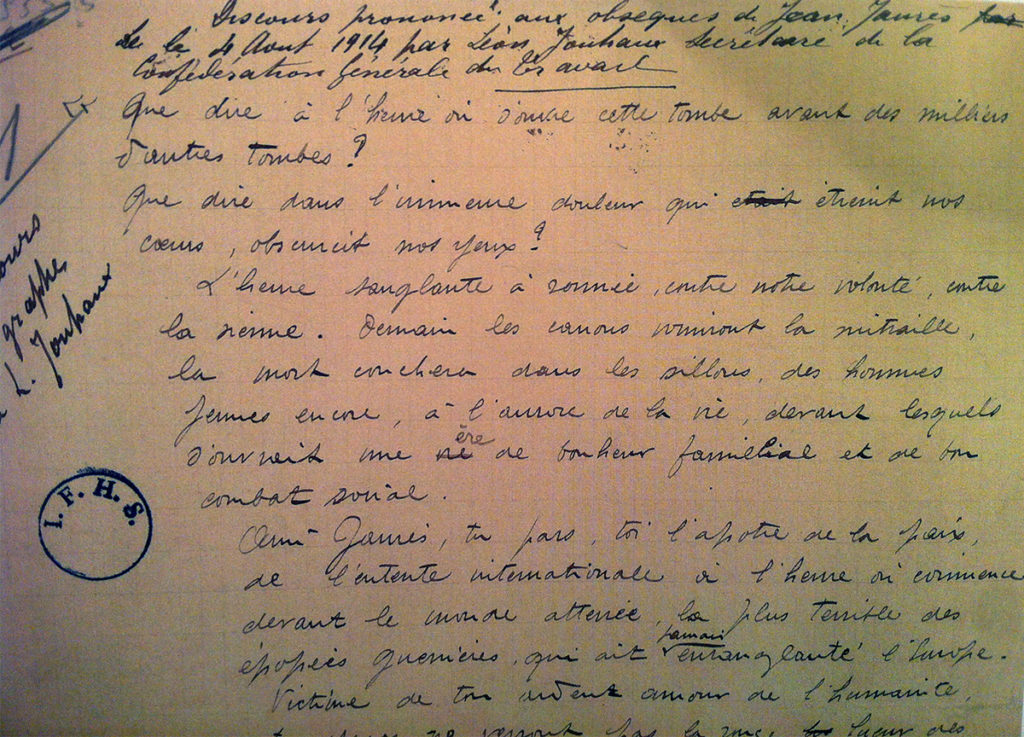 Discours prononcé aux obsèques de Jean Jaurès par
le 4 Aout 1914 par Léon Jouhaux Secrétaire de la
Confédération Générale du Travail
Que dire à l'heure où s'ouvre cette tombe avant des milliers
d'autres tombes ?
Que dire dans l'immense douleur qui etait étreint nos
cœurs, obscurcit nos yeux ?
L'heure sanglante à sonnée, contre notre volonté, contre
la sienne. Demain les canons vomiront la mitraille,
la mort couchera dans les sillons, des hommes
jeunes encore, à l'aurore de la vie, devant lesquels
s'ouvrait une ère de bonheur familial et de bon
combat social.
Ami Jaurès, tu pars, toi l'apotre de la paix,
de l'entente internationale à l'heure où commence
devant le monde atterrée, la plus terrible des
épopées guerrières, qui ait jamais ensanglanté l'Europe.
Victime de ton ardent amour de l'humanité,
ne verront pas la rouge lueur des
graphe
L. Jouhaux
I. F. H. S.